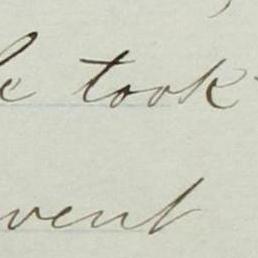 took
went